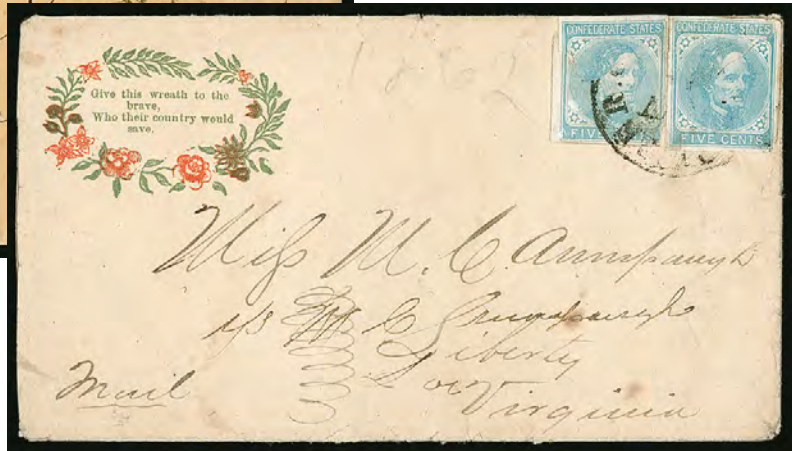 Give this wreath to the
brave,
Who their country would
save.
1862
CONFEDERATE STATES
FIVE CENTS
CONFEDERATE STATES
FIVE CENTS
Miss M. C. Aunspaugh
Liberty
Virginia
Mail